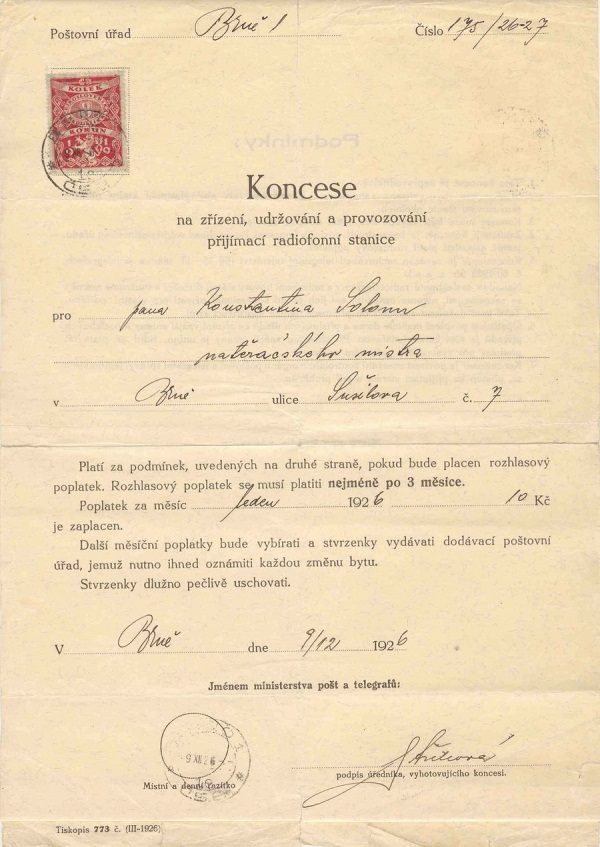 Poštovní úřad Brně 1 Číslo 175/26-27
KOLEK
KORUN
Koncese
na zřízení, udržování a provozování
přijímací radiofonní stanice
pro pana Konstantina
natěračského mistra
v Brně ulice Sušilova č. 7
Platí za podmínek, uvedených na druhé straně, pokud bude placen rozhlasový
poplatek. Rozhlasový poplatek se musí platiti nejméně po 3 měsíce.
Poplatek za měsíc leden 1926 10 Kč
je zaplacen.
Další měsíční poplatky bude vybírati a stvrzenky vydávati dodávací poštovní
úřad, jemuž nutno ihned oznámiti každou změnu bytu.
Stvrzenky dlužno pečlivě uschovati.
V Brně dne 9/12 1926
Jménem ministerstva pošt a telegrafů:
podpis úředníka, vyhotovujícího koncesi.
Místní a denní razítko
Tiskopis 773 č. (III-1926)